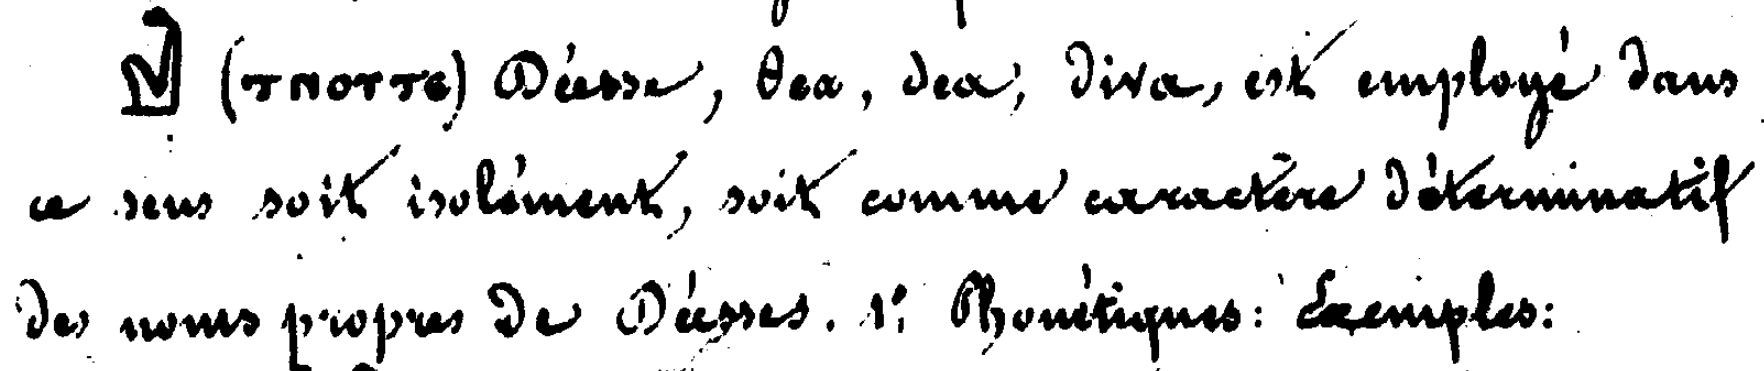 (ⲧⲛⲟⲩⲧⲉ) Déesse, θεα, dea, diva, est employé dans
ce sens soit isolément, soit comme caractère déterminatif
des noms propres de Déesses. 1° Phonétiques: Exemples: